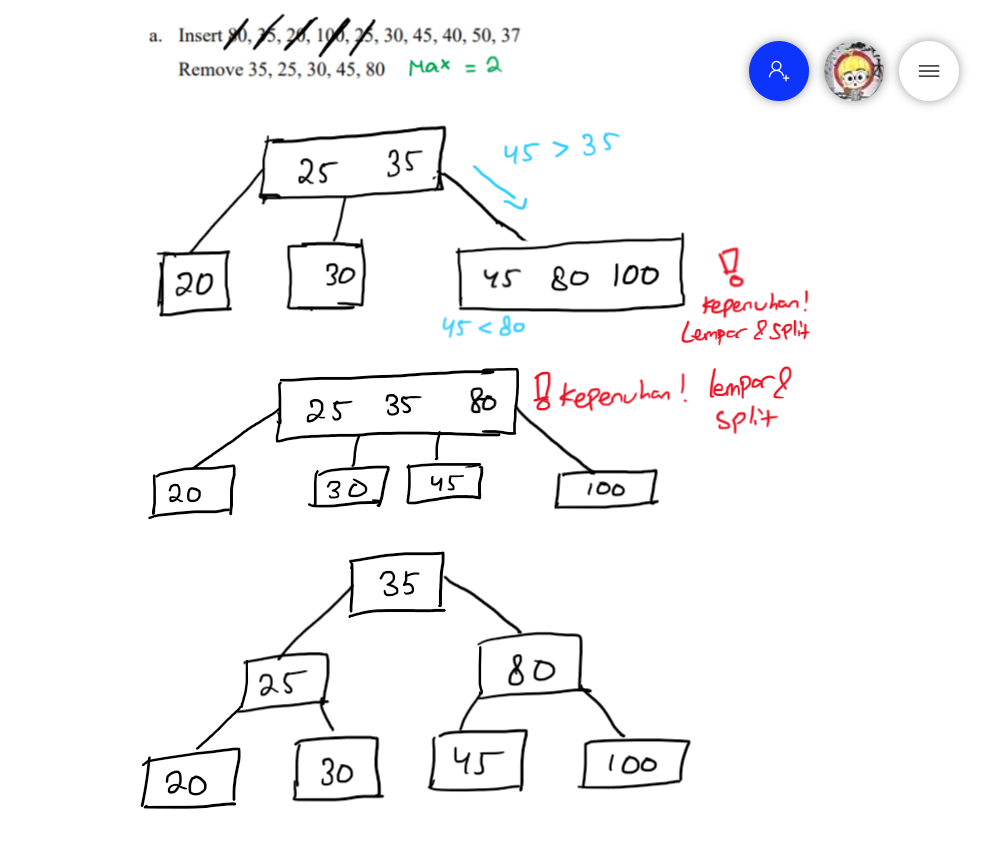 a. Insert 80, 35, 20, 100, 25, 30, 45, 40, 50, 37
Remove 35, 25, 30, 45, 80 Max = 2
45 > 35
25 35
20 30 45 80 100
45 < 80
!
kepenuhan!
Lempar & split
25 35 80
! kepenuhan! lempar &
split
20 30 45 100
35
25 80
20 30 45 100